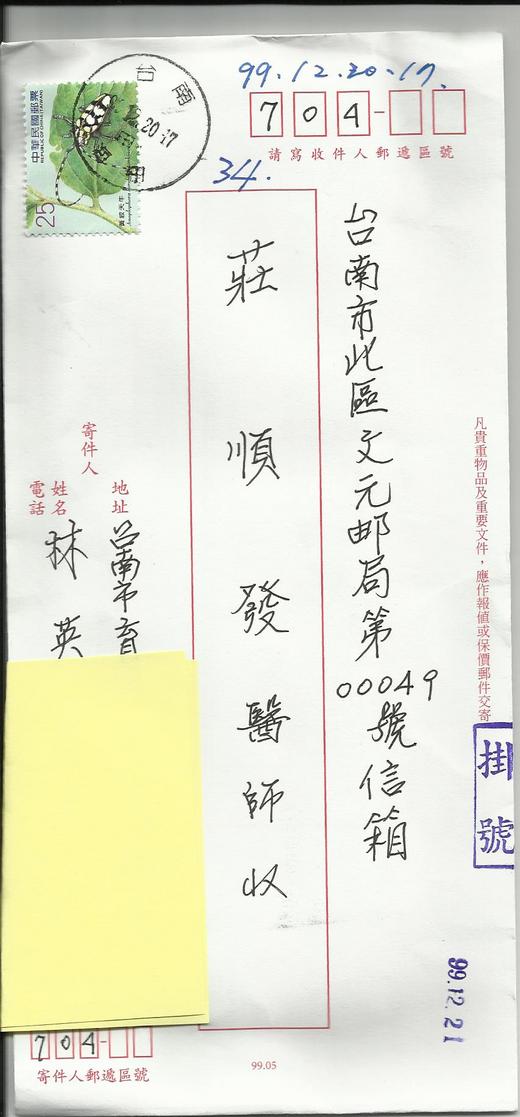 99.12.20-17.
704-
請寫收件人郵遞區號
34.
台南
12.20.17
中華民國郵票
REPUBLIC OF CHINA (TAIWAN)
25
黃紋天牛
台南市北區文元邮局第00049號信箱
莊順發醫師收
凡貴重物品及重要文件，應作報値或保價郵件交寄
掛號
99.12.21
寄件人
地址
台南市育
姓名
電話
林英
704-
寄件人郵遞區號
99.05